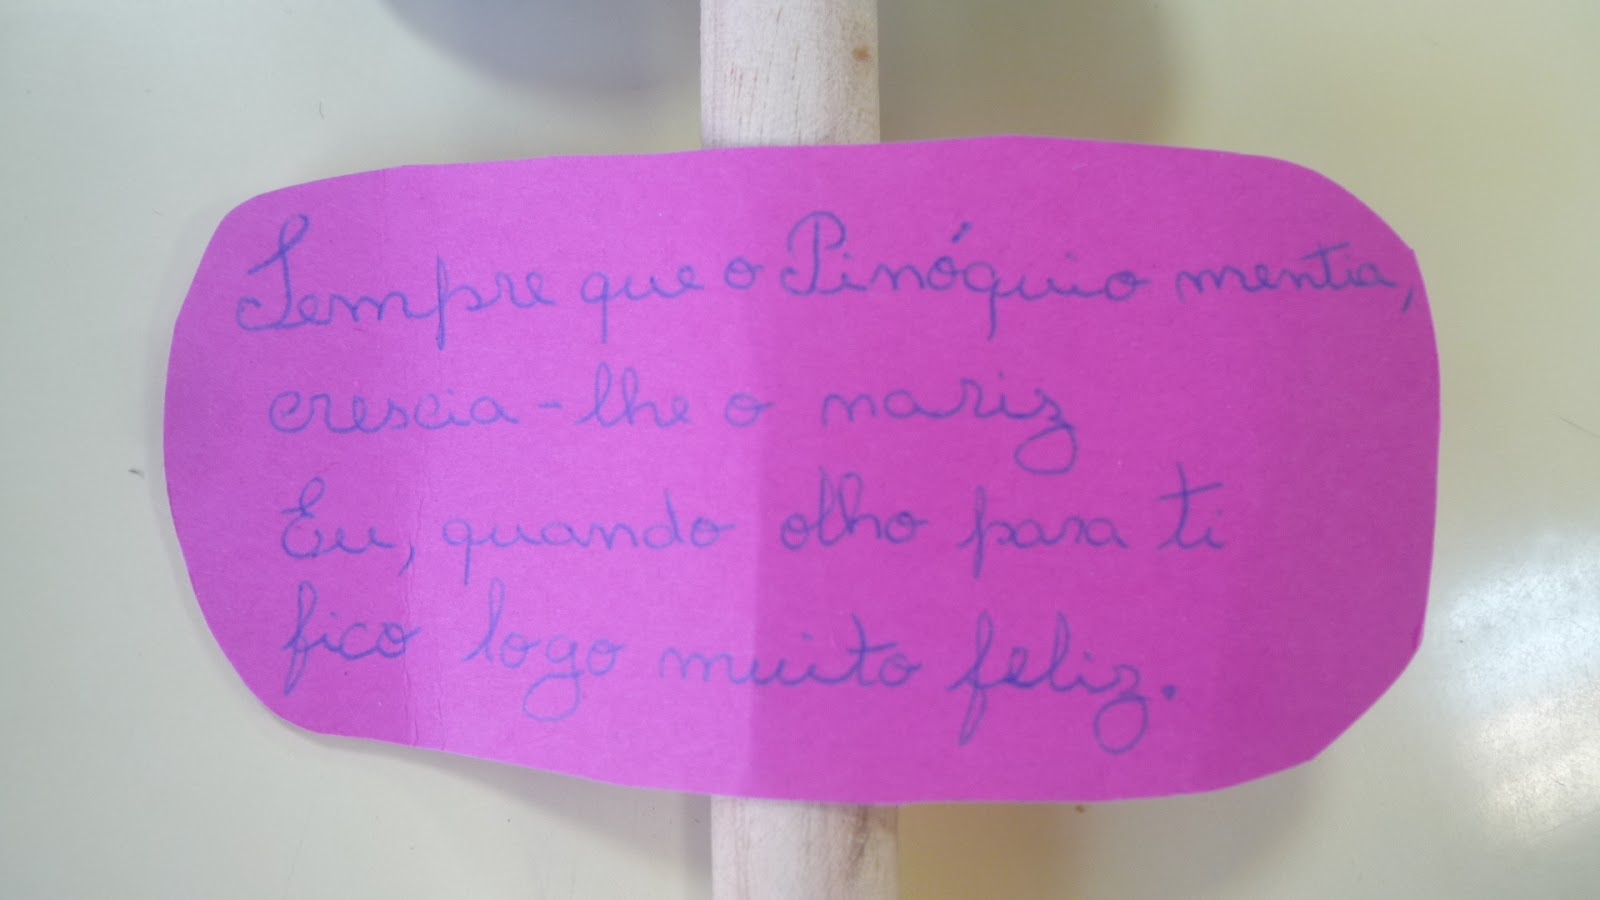 Sempre que o Pinóquio mentia,
crescia-lhe o nariz
Eu, quando olho para ti
fico logo muito feliz.